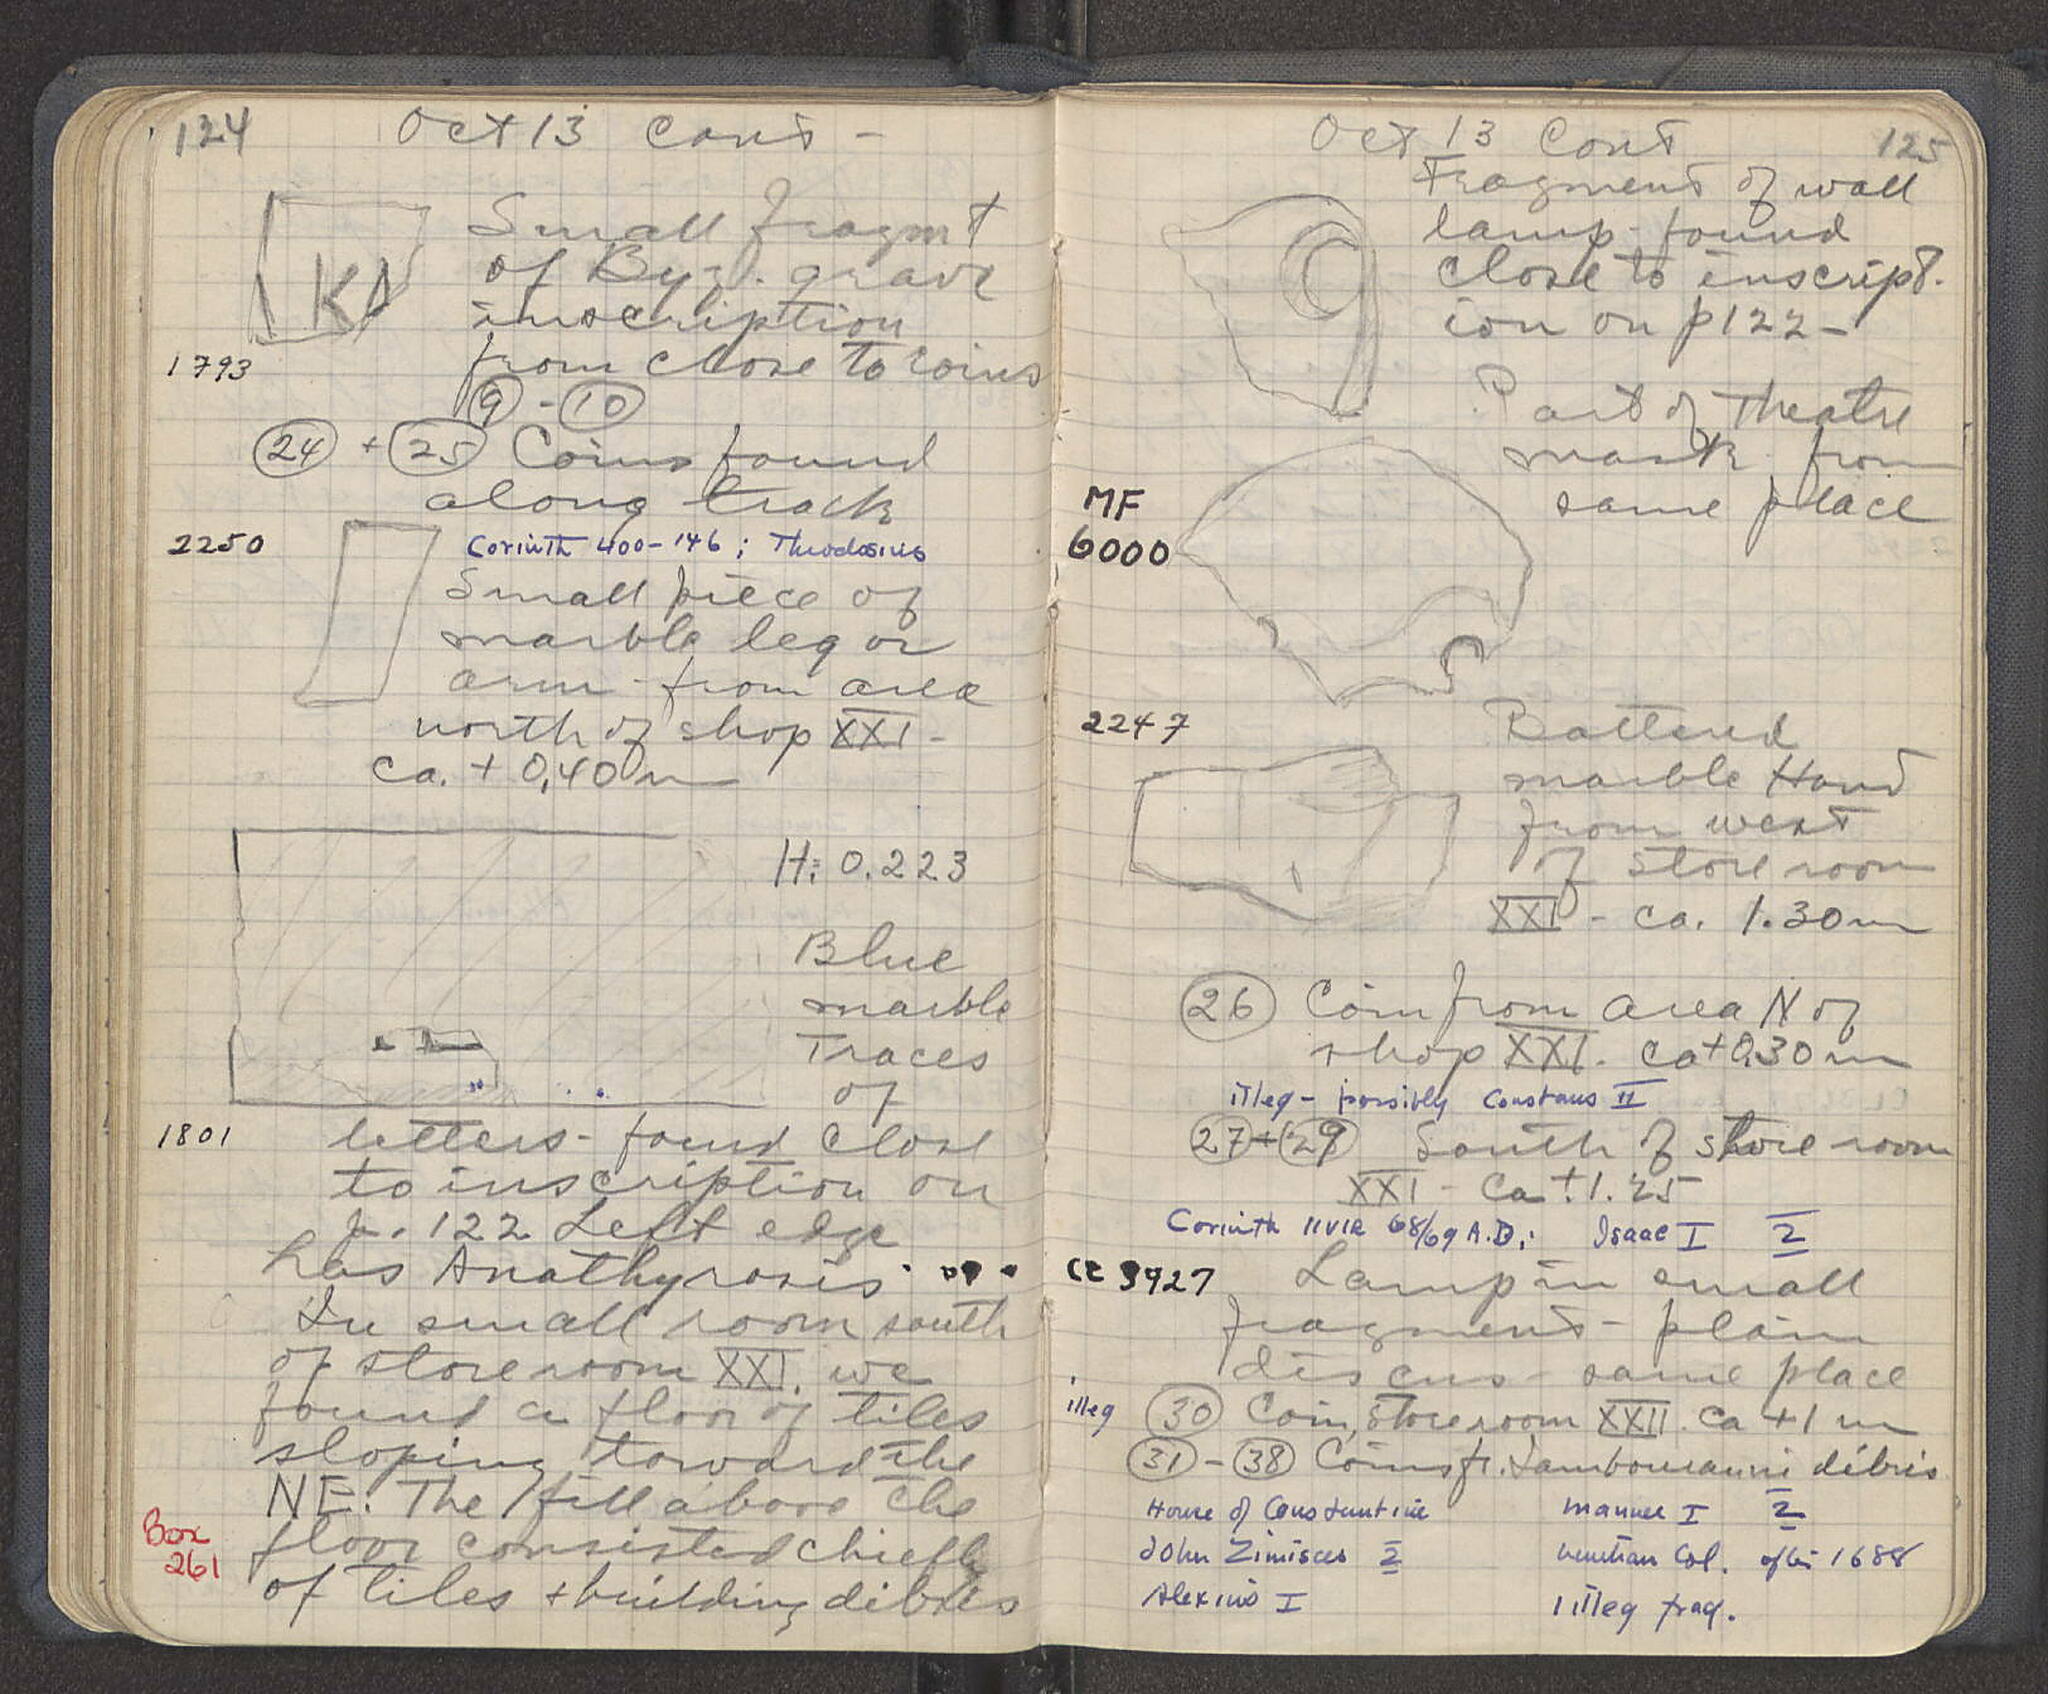 124 Oct 13 Cont -
KA
Small fragmt
of Byz. grave
inscription
from close to coins
1793
9 - 10
24 + 25 Coins found
along track
2250
Corinth 400-146; Theodosius
Small piece of
marble leg or
arm from area
north of shop XXI -
ca. + 0,40 m
H: 0.223
Blue
marble
Traces
of
1801
letters - found close
to inscription on
p. 122 Left edge
has Anathyrosis
In small room south
of storeroom XXI, we
found a floor of tiles
sloping toward the
NE. The fill above the
Box
261
floor consisted chiefly
of tiles + building débris
Oct 13 Cont 125
Fragment of wall
lamp found
close to inscript-
ion on p 122 -
Part of Theatre
mask from
same place
MF
6000
2247
Battered
marble Hand
from west
of store room
XXI - ca. 1.30 m
26 Coin from area N of
shop XXI. ca +0.30 m
illeg - possibly Constans II
27 + 29 South of store room
XXI - Ca +1.25
Corinth IIVIR 68/69 A.D.; Isaac I 2
CE 3927
Lamp in small
fragments - plain
discus - same place
illeg 30 Coin, Storeroom XXII. ca +1 m
31 - 38 Coins fr. Lambouranni débris
House of Constantine Manuel I 2
John Zimisces 2 Venetian Col. after 1688
Alexius I 1 illeg frag.